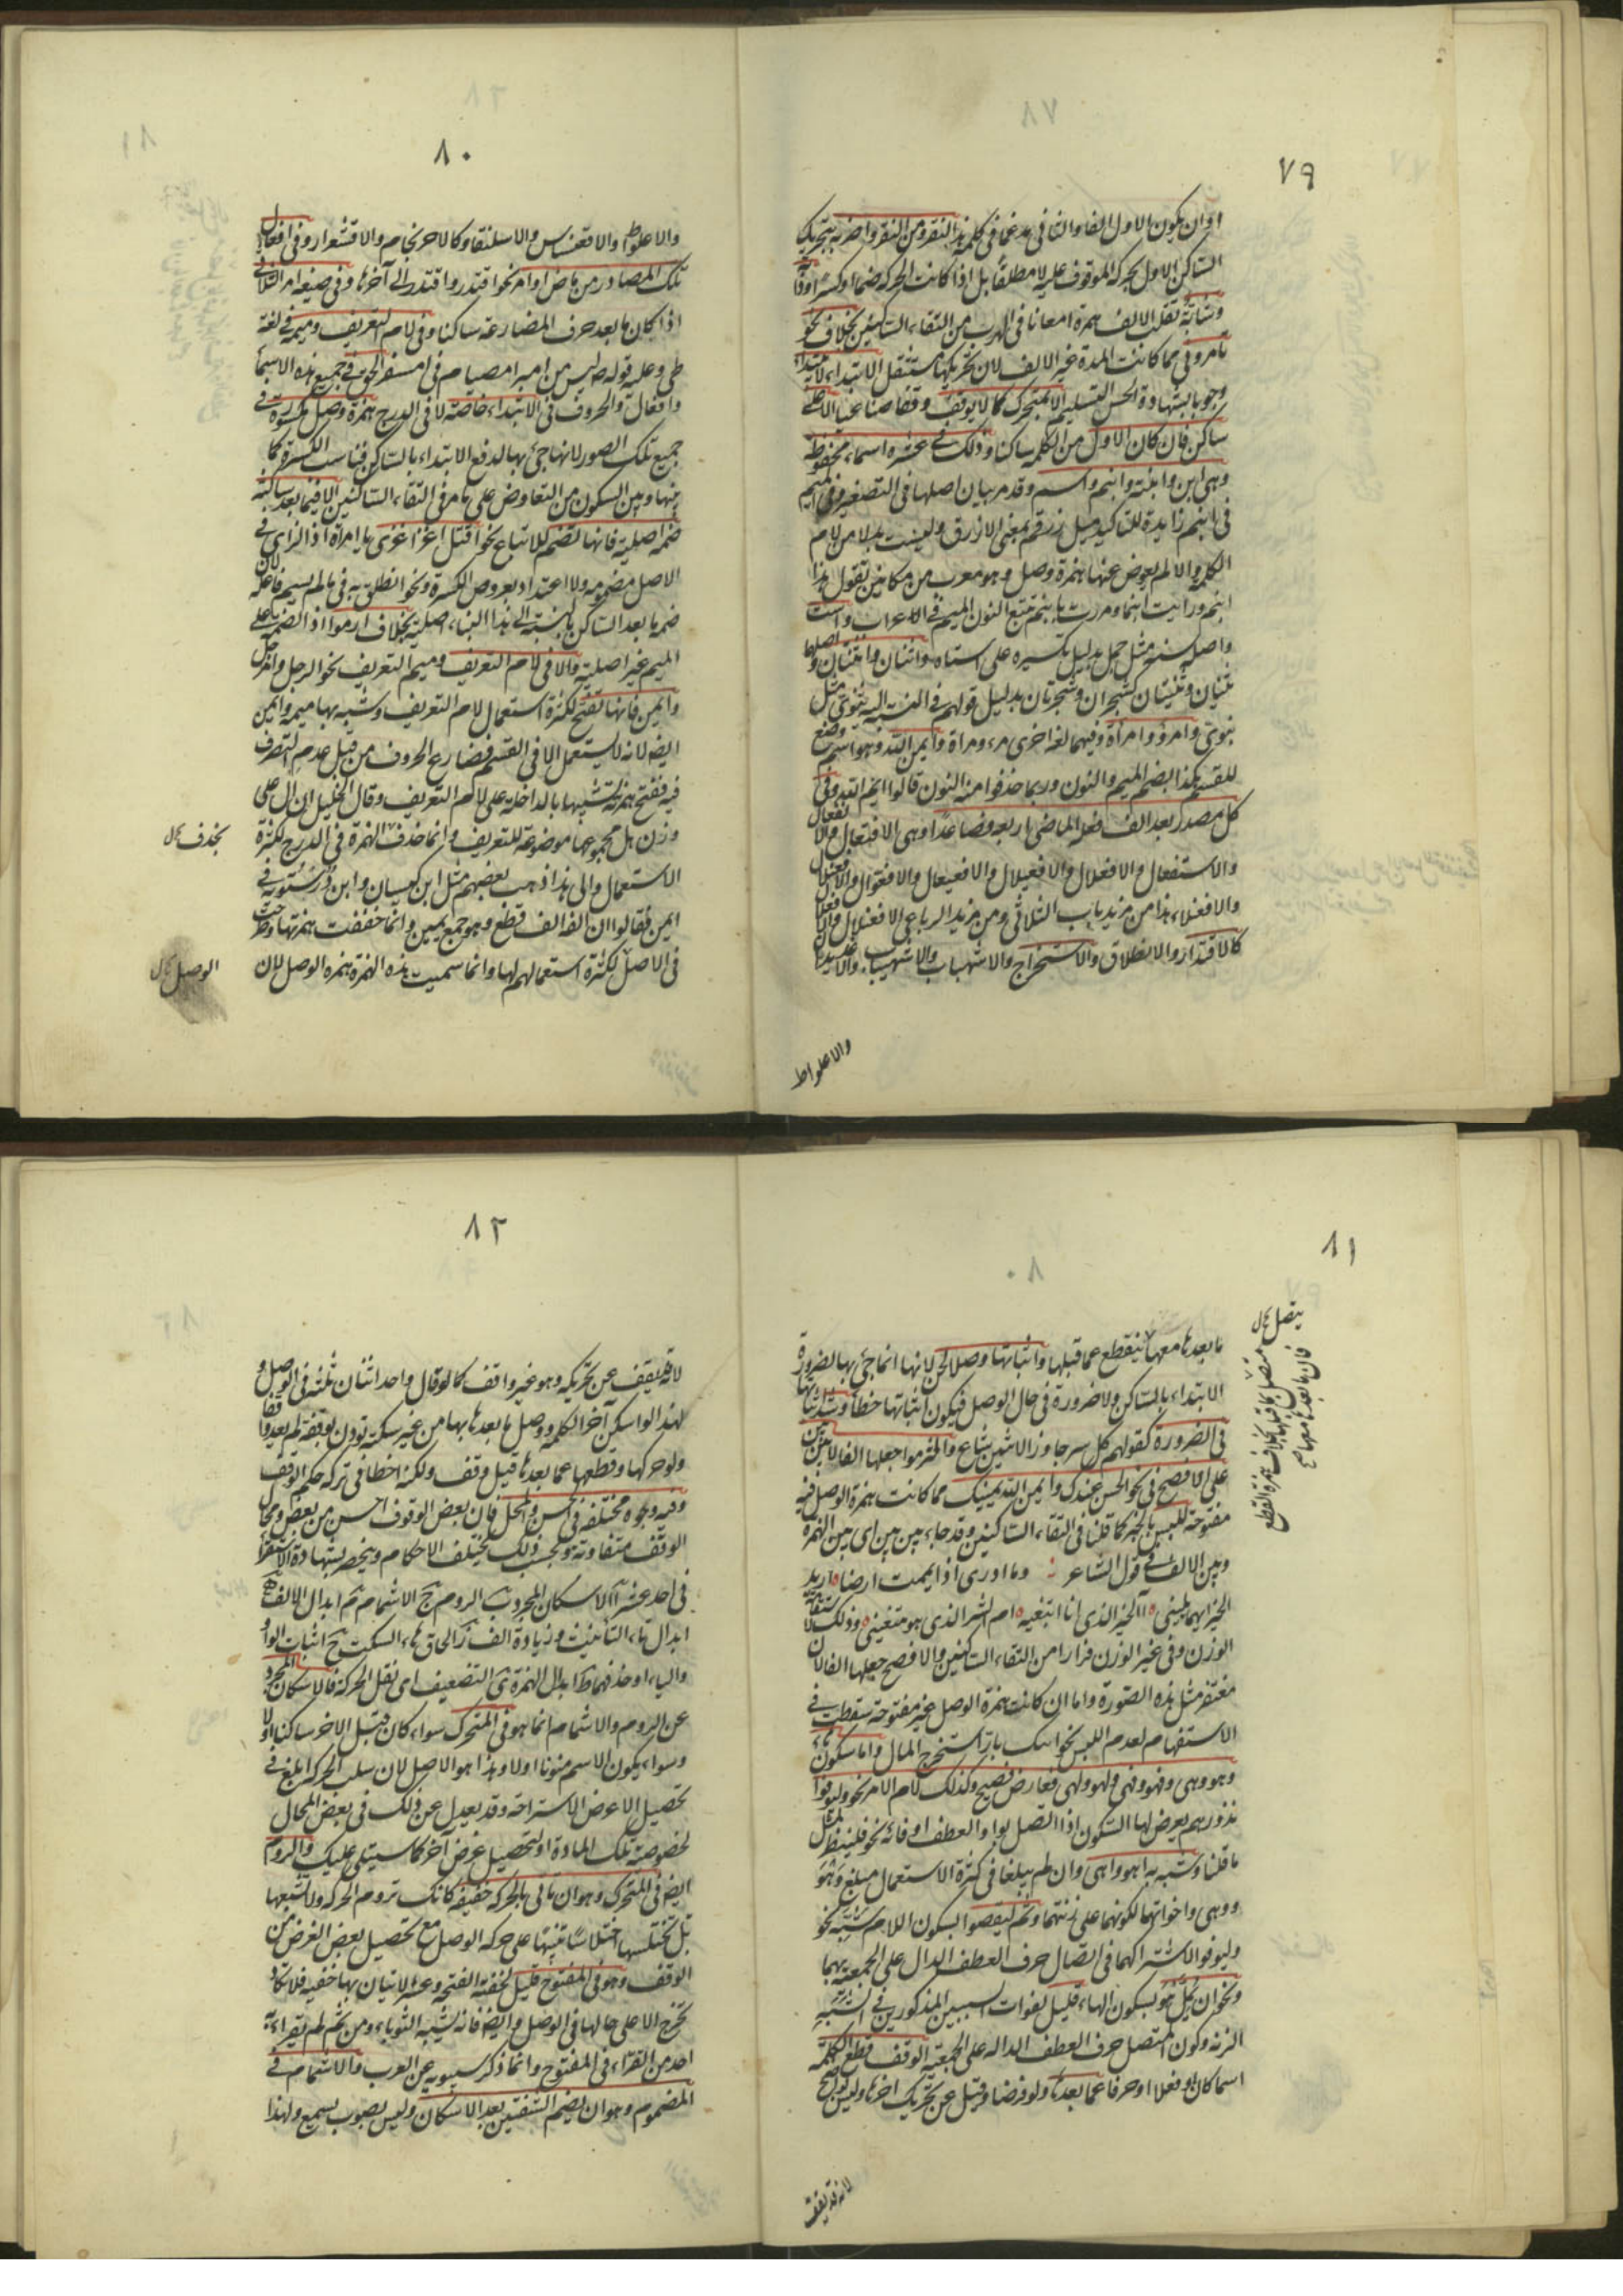 ٧٩
او ان يكون الاول الفا والثانى مدغما فى كلمة هذا النقر ومن النقر واضربه بتحريك
الساكن الاول بحركة الموقوف عليه لا مطلقا بل اذا كانت الحركة ضما او كسرا
تقلب الالف همزة امعانا فى الهرب من التقاء الساكنين بخلاف نحو
تامرونى مما كانت المدة غير الالف لان تحريكها مستثقل الابتداء لا يبتداء
وجوبا بشهادة الحس التسليم الا بمتحرك كما لا يوقف وقفا صناعيا الا على
ساكن فان كان الاول من الكلمة ساكنا وذلك فى عشرة اسماء محفوظة
وهى ابن وابنة وابنم واسم وقد مر بيان اصلها فى التصغير والميم
فى ابنم زايدة للتاكيد مثل زرقم بمعنى الازرق وليست بدلا من لام
الكلمة والا لم يعوض عنها همزة وصل وهو معرب من مكانين تقول هذا
ابنم ورايت ابنما ومررت بابنم تتبع النون الميم فى الاعراب واست
واصله سته مثل جمل بدليل تكسيره على استاه واثنان واثنتان واصلها
ثنيان وثنيتان كشجران وشجرتان بدليل قولهم فى النسبة اليه ثنوى مثل
بنوى وامرؤ وامرأة وفيهما لغة اخرى مرء ومراة وايمن الله وهو اسم وضع
للقسم هكذا بضم الميم والنون وربما حذفوا منه النون قالوا ايم الله وفى
كل مصدر بعد الف فعله الماضى اربعة فصاعدا وهى الافتعال والانفعال
والاستفعال والافعلال والافعيلال والافعيعال والافعوال والافعنلال
والافعنلاء هذا من مزيد باب الثلاثى ومن مزيد الرباعى الافعنلال والافعلال
كالاقتدار والانطلاق والاستخراج والاشهباب والاشهيباب والاغديدان
والاعلواط
٨٠
والاعلواط والاقعنساس والاسلنقاء وكالاحرنجام والاقشعرار وفى افعال
تلك المصادر من ماض او امر نحو اقتدر واقتدر الى آخرها وفى صيغة امر الثلاثى
اذا كان ما بعد حرف المضارعة ساكنا وفى لام التعريف وميمه فى لغة
طى وعليه قوله ليس من امبر امصيام فى امسفر الحق فى جميع هذه الاسماء
وافعال والحروف فى الابتداء خاصة لا فى الدرج همزة وصل مكسورة فى
جميع تلك الصور لانها جئ بها لدفع الابتداء بالساكن فناسب الكسرة كما
بينها وبين السكون من التعاوض على ما مر فى التقاء الساكنين الا فيما بعد ساكنه
ضمة اصلية فانها تضم للاتباع نحو اقتل اغز اغزى يا امراة اذ الزاى فى
الاصل مضمومة ولا اعتداد بعروض الكسرة ونحو انطلق به فى ما لم يسم فاعله لان
ضمة ما بعد الساكن بالنسبة الى هذا البناء اصلية بخلاف ارموا اذ الضمة على
الميم غير اصلية والا فى لام التعريف وميم التعريف نحو الرجل وامرجل
وايمن فانها تفتح لكثرة استعمال لام التعريف وشبه بها ميمه وايمن
ايضا لانه لا يستعمل الا فى القسم فضارع الحروف من قبل عدم التصرف
فيه ففتح همزته تشبيها بالداخلة على لام التعريف وقال الخليل ان ال على
وزن هل مجموعهما موضوعة للتعريف وانما حذف الهمزة فى الدرج لكثرة
الاستعمال والى هذا ذهب بعضهم مثل ابن كيسان وابن درستويه فى
ايمن فقالوا ان الفه الف قطع وهو جمع يمين وانما خففت همزتها وطرحت
فى الاصل لكثرة استعمالهم لها وانما سميت هذه الهمزة همزة الوصل لان
بحذف
الوصل
٨١
ما بعدها معها ينقطع عما قبلها واثباتها وصلا لحن لانها انما جئ بها لضرورة
الابتداء بالساكن ولا ضرورة فى حال الوصل فيكون اثباتها خطأ وشذ اثباتها
فى الضرورة كقولهم كل سر جاوز الاثنين شاع والتزموا جعلها الفا لا بين بين
على الافصح فى نحو الحسن عندك وايمن الله يمينك مما كانت همزة الوصل فيه
مفتوحة للبس بالخبر كما قلنا فى التقاء الساكنين وقد جاء بين بين اى بين الهمزة
وبين الالف فى قول الشاعر وما ادرى اذا يممت ارضا اريد
الخير ايهما يلينى أالخير الذى انا ابتغيه ام الشر الذى هو متبغينى وذلك
الوزن وفى غير الوزن فرارا من التقاء الساكنين والافصح جعلها الفا لان
مغتفر مثل هذه الصورة واما ان كانت همزة الوصل غير مفتوحة سقطت فى
الاستفهام لعدم اللبس نحو ابنك بار استخرج المال واما سكون هاء
وهو وهى وفهو وفهى ولهو ولهى فعارض فصيح وكذلك لام الامر نحو وليوفوا
نذورهم يعرض لها السكون اذا اتصل بواو العطف او فائه نحو فلينظر لمثل
ما قلنا وشبه به اهو واهى وان لم يبلغا فى كثرة الاستعمال مبلغ وهو
ووهى واخواتها لكونهما على زنتهما وثم ليقضوا بسكون اللام شبه نحو
وليوفوا لاشتراكهما فى اتصال حرف العطف الدال على الجمعية بهما
ونحو ان يمل هو بسكون الهاء قليل لفوات السببين المذكورين فى التشبيه
الزنة وكون المتصل حرف العطف الدالة على الجمعية الوقف قطع الكلمة
اسما كان او فعلا او حرفا عما بعدها ولو فرضا وقيل عن تحريك اخرها وليس بصحيح
لانه قد يقف
يتصل
متصل بما قبلها بخلاف همزة القطع
فان ما بعدها معها
٨٢
لانه قد يقف عن تحريكه وهو غير واقف كما لو قال واحد اثنان ثلثه فى الوصل و
لهذا لو اسكن آخر الكلمة ووصل ما بعدها بها من غير سكتة تؤذن بوقفة لم يعد واقفا
ولو حركها وقطعها عما بعدها قيل وقف ولكنه اخطأ فى تركه حكم الوقف
وفيه وجوه مختلفة فى الحسن والمحل فان بعض الوقوف احسن من بعض ومحال
الوقف متفاوتة وبحسب ذلك تختلف الاحكام وينحصر بشهادة الاستقراء
فى احد عشر الاسكان المجرد الروم الاشمام ابدال الالف
ابدال تاء التانيث زيادة الف الحاق هاء السكت اثبات الواو
والياء او حذفهما ابدال الهمزة التضعيف نقل الحركة فالاسكان المجرد
عن الروم والاشمام انما هو فى المتحرك سواء كان قبل الاخر ساكنا اولا
وسواء يكون الاسم منونا اولا وهذا هو الاصل لان سلب الحركة ابلغ فى
تحصيل الاعوض الاستراحة وقد يعدل عن ذلك فى بعض المحال
لخصوصية تلك المادة او لتحصيل غرض آخر كما سيتلى عليك والروم
ايضا فى المتحرك وهو ان تاتى بالحركة خفيفة كانك تروم الحركة ولا تشبعها
بل تختلسها اختلاسا تنبيها على حركة الوصل مع تحصيل بعض الغرض من
الوقف وهو فى المفتوح قليل لخفة الفتحة وعسر الاتيان بها خفية فلا تكاد
تخرج الا على حالها فى الوصل وايضا فانه يشبه الثوباء ومن ثم لم يقراءه
احد من القراء فى المفتوح وانما ذكر سيبويه عن العرب والاشمام فى
المضموم وهو ان يضم الشفتين بعد الاسكان وليس بصوب يسمع ولهذا